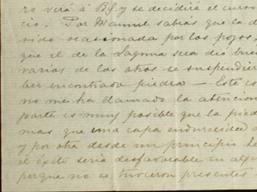 verá á Bf. y se decidirá el curso
cio. Por Manuel sabías que la d
sido ocasionada por los pozos,
que el de la Laguna sea de buen
varias de las otras se suspendier
ber encontrado piedra — Esto es
no me ha llamado la atencion
parte es muy posible que la pied
mas que una capa endurecida d
y por otra desde un principio
el éxito seria desfavorable en algu
porque no se tuvieron presentes